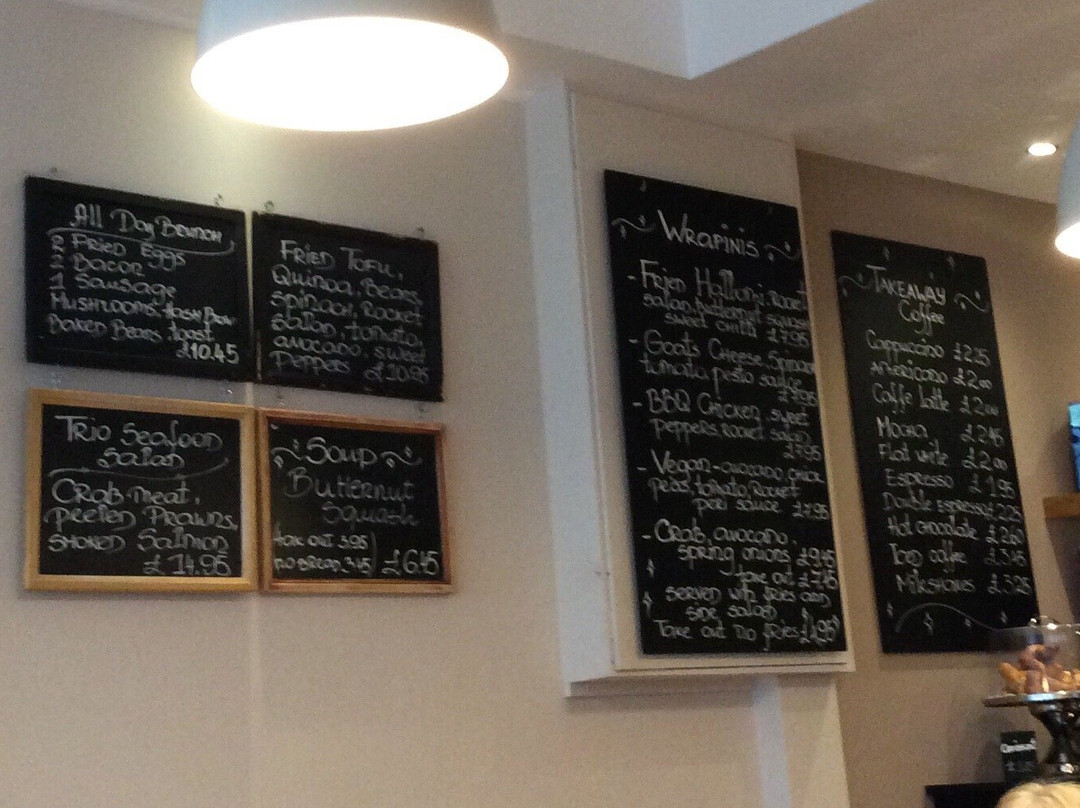 All Day Brunch
2 Fried Eggs
2 Bacon
1 Sausage
Mushrooms, Hash Brown
Baked Beans, toast
£10.45
Fried Tofu,
Quinoa, Beans,
spinach, Rocket
salad, tomato,
avocado, sweet
Peppers £10.95
Trio Seafood
Salad
Crab meat,
peeled Prawns,
smoked Salmon
£14.95
Soup
Butternut
Squash
tak out 3.95
no bread 3.45 £6.45
Wrapinis
- Fried Halloumi, Rocket
salad, butternut squash
sweet chilli £7.95
- Goats Cheese, Spinach
tomato, pesto sauce
£7.95
- BBQ Chicken, sweet
peppers, rocket salad
£7.95
- Vegan - avocado, chick
peas, tomato, Rocket
peri sauce £7.95
- Crab, avocado,
spring onions £9.45
take out £7.45
served with fries and
side salad
Take out no fries £4.95
Takeaway
Coffee
Cappuccino £2.25
Americano £2.00
Caffe latte £2.00
Mocha £2.45
Flat wite £2.00
Espresso £1.95
Double Espresso £2.25
Hot chocolate £2.60
Iced coffee £3.45
Milkshakes £3.25